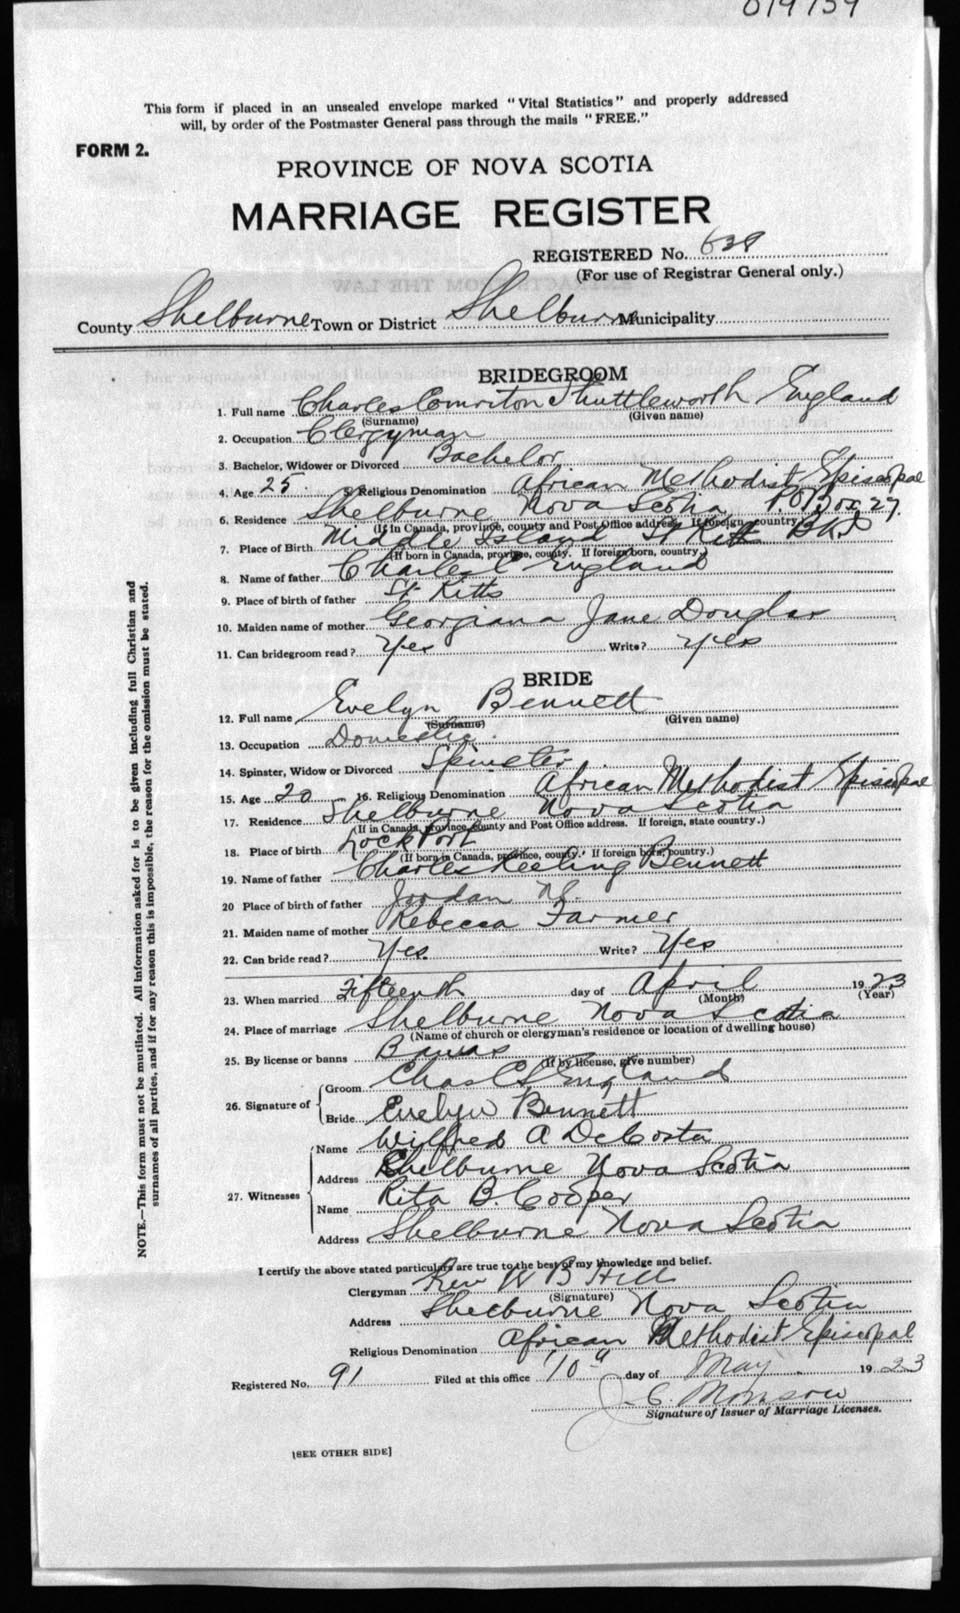 019139
This form if placed in an unsealed envelope marked "Vital Statistics" and properly addressed
will, by order of the Postmaster General pass through the mails "FREE."
FORM 2.
PROVINCE OF NOVA SCOTIA
MARRIAGE REGISTER
REGISTERED No.
(For use of Registrar General only.)
County Shelburne Town or District Shelburne Municipality
BRIDEGROOM
1. Full name Charles Shuttleworth England
(Surname) (Given name)
2. Occupation Clergyman
3. Bachelor, Widower or Divorced Bachelor
4. Age 25. 5. Religious Denomination African Methodist Episcopal
6. Residence Shelburne Nova Scotia P.O Box 27.
(If in Canada, province, county and Post Office address. If foreign, country)
7. Place of Birth Middle Island St Kitts
(If born in Canada, province, county. If foreign born, country)
8. Name of father Charles C England
9. Place of birth of father St Kitts
10. Maiden name of mother Georgiana Jane Douglas
11. Can bridegroom read? Yes Write? yes
BRIDE
12. Full name Evelyn Bennett
(Surname) (Given name)
13. Occupation Domestic.
14. Spinster, Widow or Divorced Spinster
15. Age 20 16. Religious Denomination African Methodist Episcopal
17. Residence Shelburne Nova Scotia
(If in Canada, province, county and Post Office address. If foreign, state country.)
18. Place of birth LockPort
(If born in Canada, province, county. If foreign born, country.)
19. Name of father Charles Keeling Bennett
20 Place of birth of father Jordan N.S.
21. Maiden name of mother Rebecca Farmer
22. Can bride read? Yes. Write? Yes
23. When married Fifteenth day of April 1923
(Month) (Year)
24. Place of marriage Shelburne Nova Scotia
(Name of church or clergyman's residence or location of dwelling house)
25. By license or banns Banns
(If by license, give number)
26. Signature of Groom Chas C S England
Bride Evelyn Bennett
27. Witnesses Name Wilfred A DeCosta
Address Shelburne Nova Scotia
Name Rita B. Cooper
Address Shelburne Nova Scotia
I certify the above stated particulars are true to the best of my knowledge and belief.
Clergyman Rev W B Hill
(Signature)
Address Shelburne Nova Scotia
Religious Denomination African Methodist Episcopal
Registered No. 91 Filed at this office "10" day of May 1923
J. C. Morrison
Signature of Issuer of Marriage Licenses.
[SEE OTHER SIDE]
NOTE.—This form must not be mutilated. All information asked for is to be given including full Christian and
surnames of all parties, and if for any reason this is impossible, the reason for the omission must be stated.